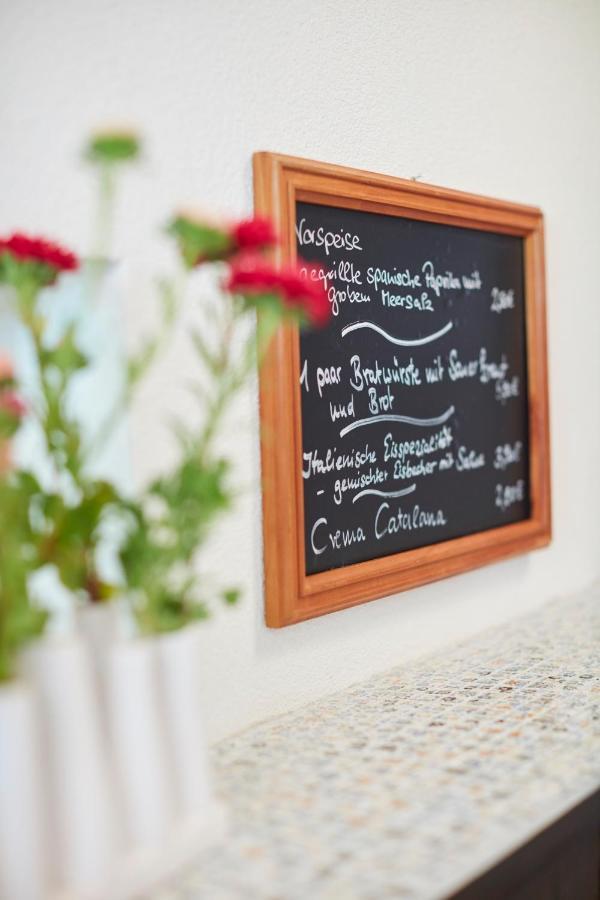 Vorspeise
gegrillte spanische Paprika mit
grobem Meersalz
1 paar Bratwürste mit Sauerkraut
und Brot
Italienische Eisspezialität
- gemischter Eisbecher mit Sahne
Crema Catalana